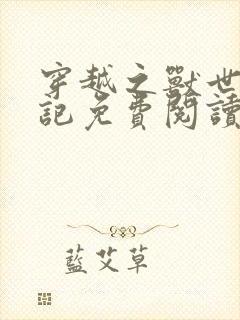 穿越之獸世
記免費閱讀
藍艾草